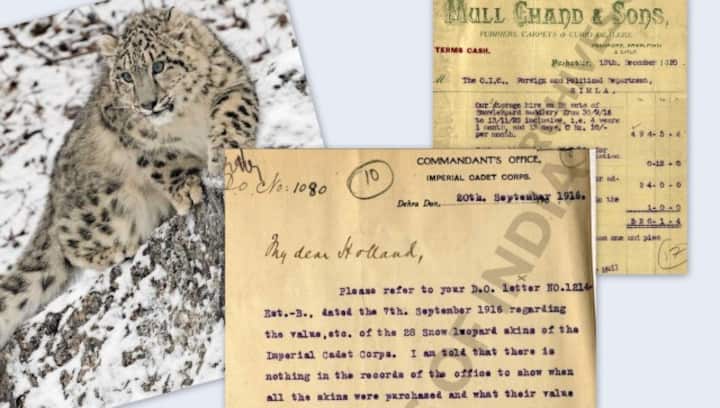 MULL CHAND & SONS,
FURRIERS, CARPETS & CURIO DEALERS.
PESHAWAR,
& SIMLA
TERMS CASH.
Peshawar, 15th. December 1920.
The O.I.C., Foreign and Political Department,
SIMLA.
Our storage hire on 28 sets of
Snowleopard saddlery from 30/9/16
to 13/11/20 inclusive, i.e. 4 years
1 month, and 13 days, @ Rs. 10/-
per month.
494-5-4
0-12-0
24-0-0
the
1-0-0
520-1-4
one and pies
17
D.O. No: 1080
10
COMMANDANT'S OFFICE,
IMPERIAL CADET CORPS.
Dehra Dun, 20th. September 1916.
My dear Holland,
Please refer to your D.O. letter NO.1214-
Est.-B., dated the 7th. September 1916 regarding
the value,etc. of the 28 Snow leopard skins of the
Imperial Cadet Corps. I am told that there is
nothing in the records of the office to show when
all the skins were purchased and what their value
OF INDIA